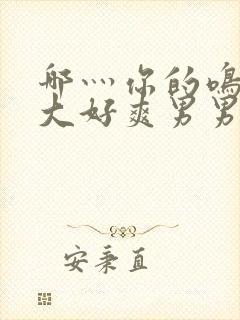 哪灬你的鸣
大好爽男男
安秉直